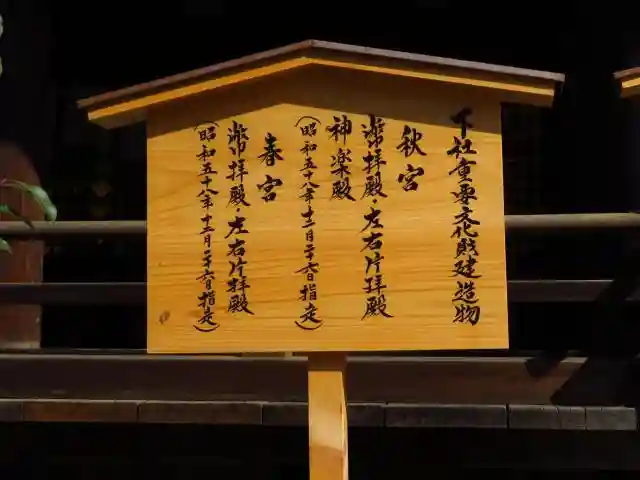 下社重要文化財建造物
秋宮
幣拝殿・左右片拝殿
神楽殿
(昭和五十八年十二月二十六日指定)
春宮
幣拝殿・左右片拝殿
(昭和五十八年十二月二十六日指定)